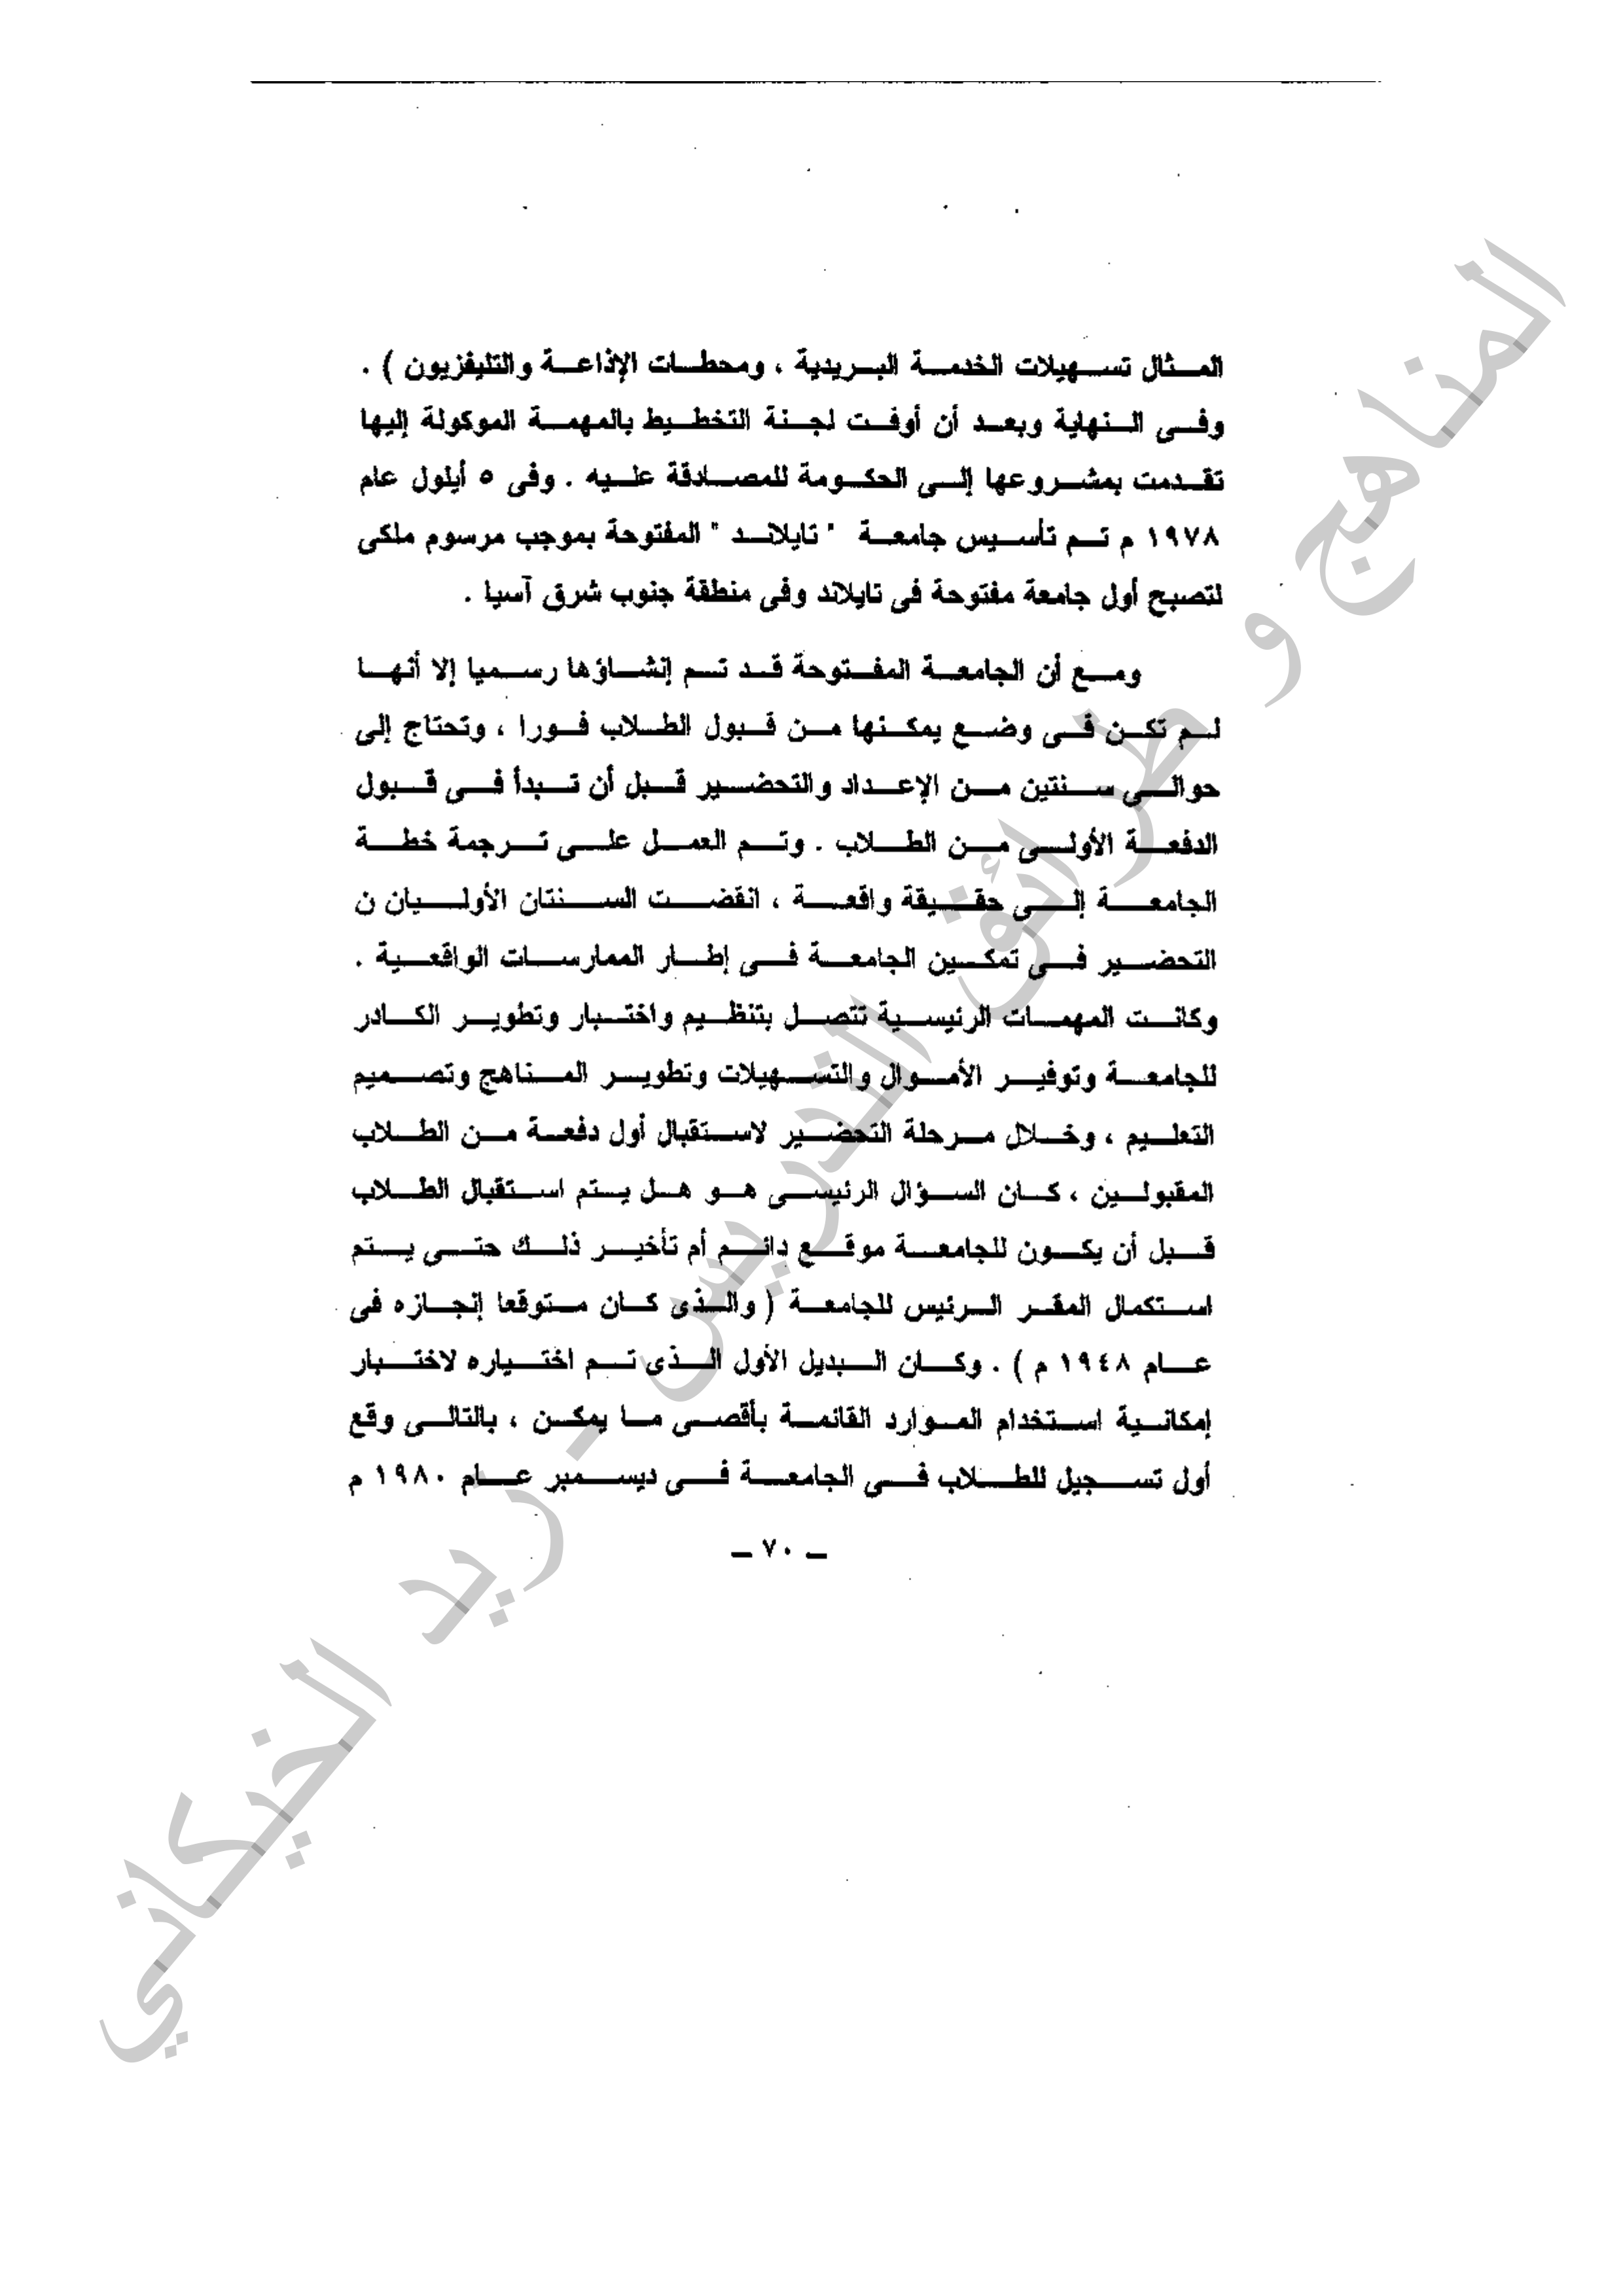 المثال تسهيلات الخدمة البريدية ، ومحطات الإذاعة والتليفزيون ) .
وفى النهاية وبعد أن أوفت لجنة التخطيط بالمهمة الموكولة إليها
تقدمت بمشروعها إلى الحكومة للمصادقة عليه . وفى ٥ أيلول عام
١٩٧٨ م تم تأسيس جامعة " تايلاند " المفتوحة بموجب مرسوم ملكى
لتصبح أول جامعة مفتوحة فى تايلاند وفى منطقة جنوب شرق آسيا .
ومع أن الجامعة المفتوحة قد تم إنشاؤها رسميا إلا أنها
لم تكن فى وضع يمكنها من قبول الطلاب فورا ، وتحتاج إلى
حوالى سنتين من الإعداد والتحضير قبل أن تبدأ فى قبول
الدفعة الأولى من الطلاب . وتم العمل على ترجمة خطة
الجامعة إلى حقيقة واقعة ، انقضت السنتان الأوليان ن
التحضير فى تمكين الجامعة فى إطار الممارسات الواقعية .
وكانت المهمات الرئيسية تتصل بتنظيم واختبار وتطوير الكادر
للجامعة وتوفير الأموال والتسهيلات وتطوير المناهج وتصميم
التعليم ، وخلال مرحلة التحضير لاستقبال أول دفعة من الطلاب
المقبولين ، كان السؤال الرئيسى هو هل يتم استقبال الطلاب
قبل أن يكون للجامعة موقع دائم أم تأخير ذلك حتى يتم
استكمال المقر الرئيس للجامعة ( والذى كان متوقعا إنجازه فى
عام ١٩٤٨ م ) . وكان البديل الأول الذى تم اختياره لاختبار
إمكانية استخدام الموارد القائمة بأقصى ما يمكن ، بالتالى وقع
أول تسجيل للطلاب فى الجامعة فى ديسمبر عام ١٩٨٠ م
ـ ٧٠ ـ
المناهج و طرائق التدريس - ريد الخيكاني